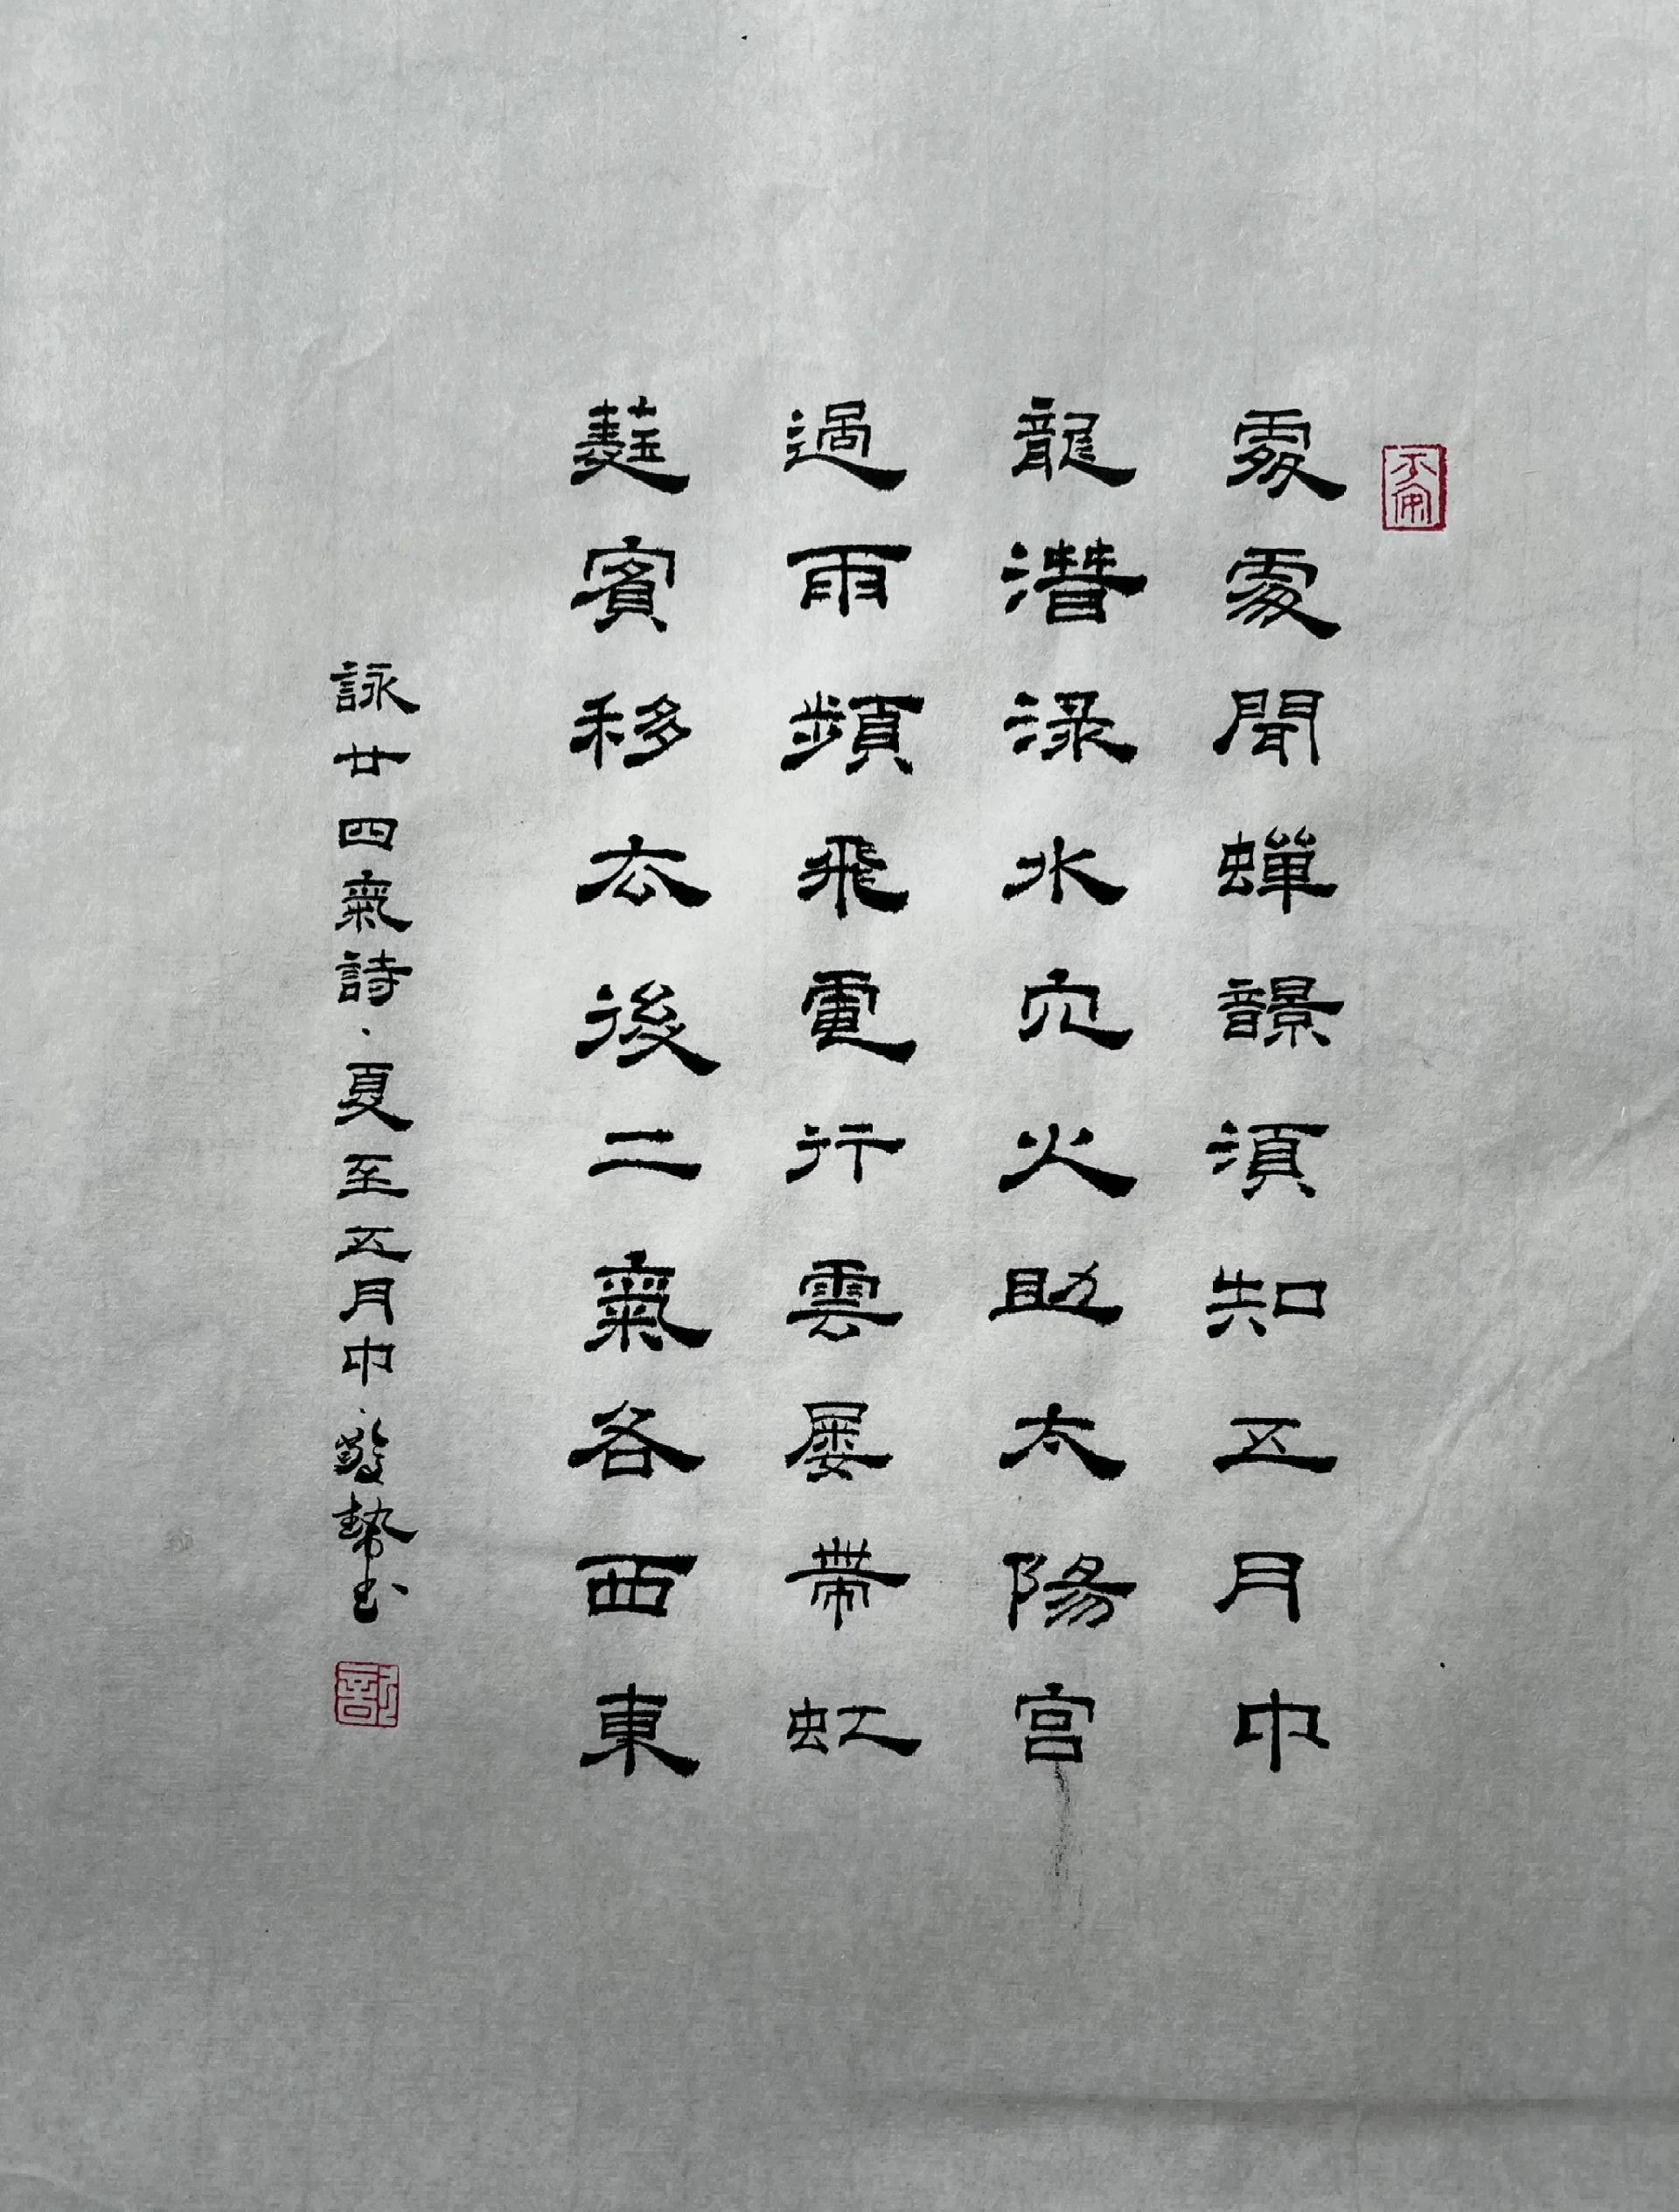 處處聞蟬韻須知五月中
龍潛渌水穴火助太陽宮
過雨頻飛電行雲屢帶虹
蕤賓移去後二氣各西東
詠廿四氣詩、夏至五月中、